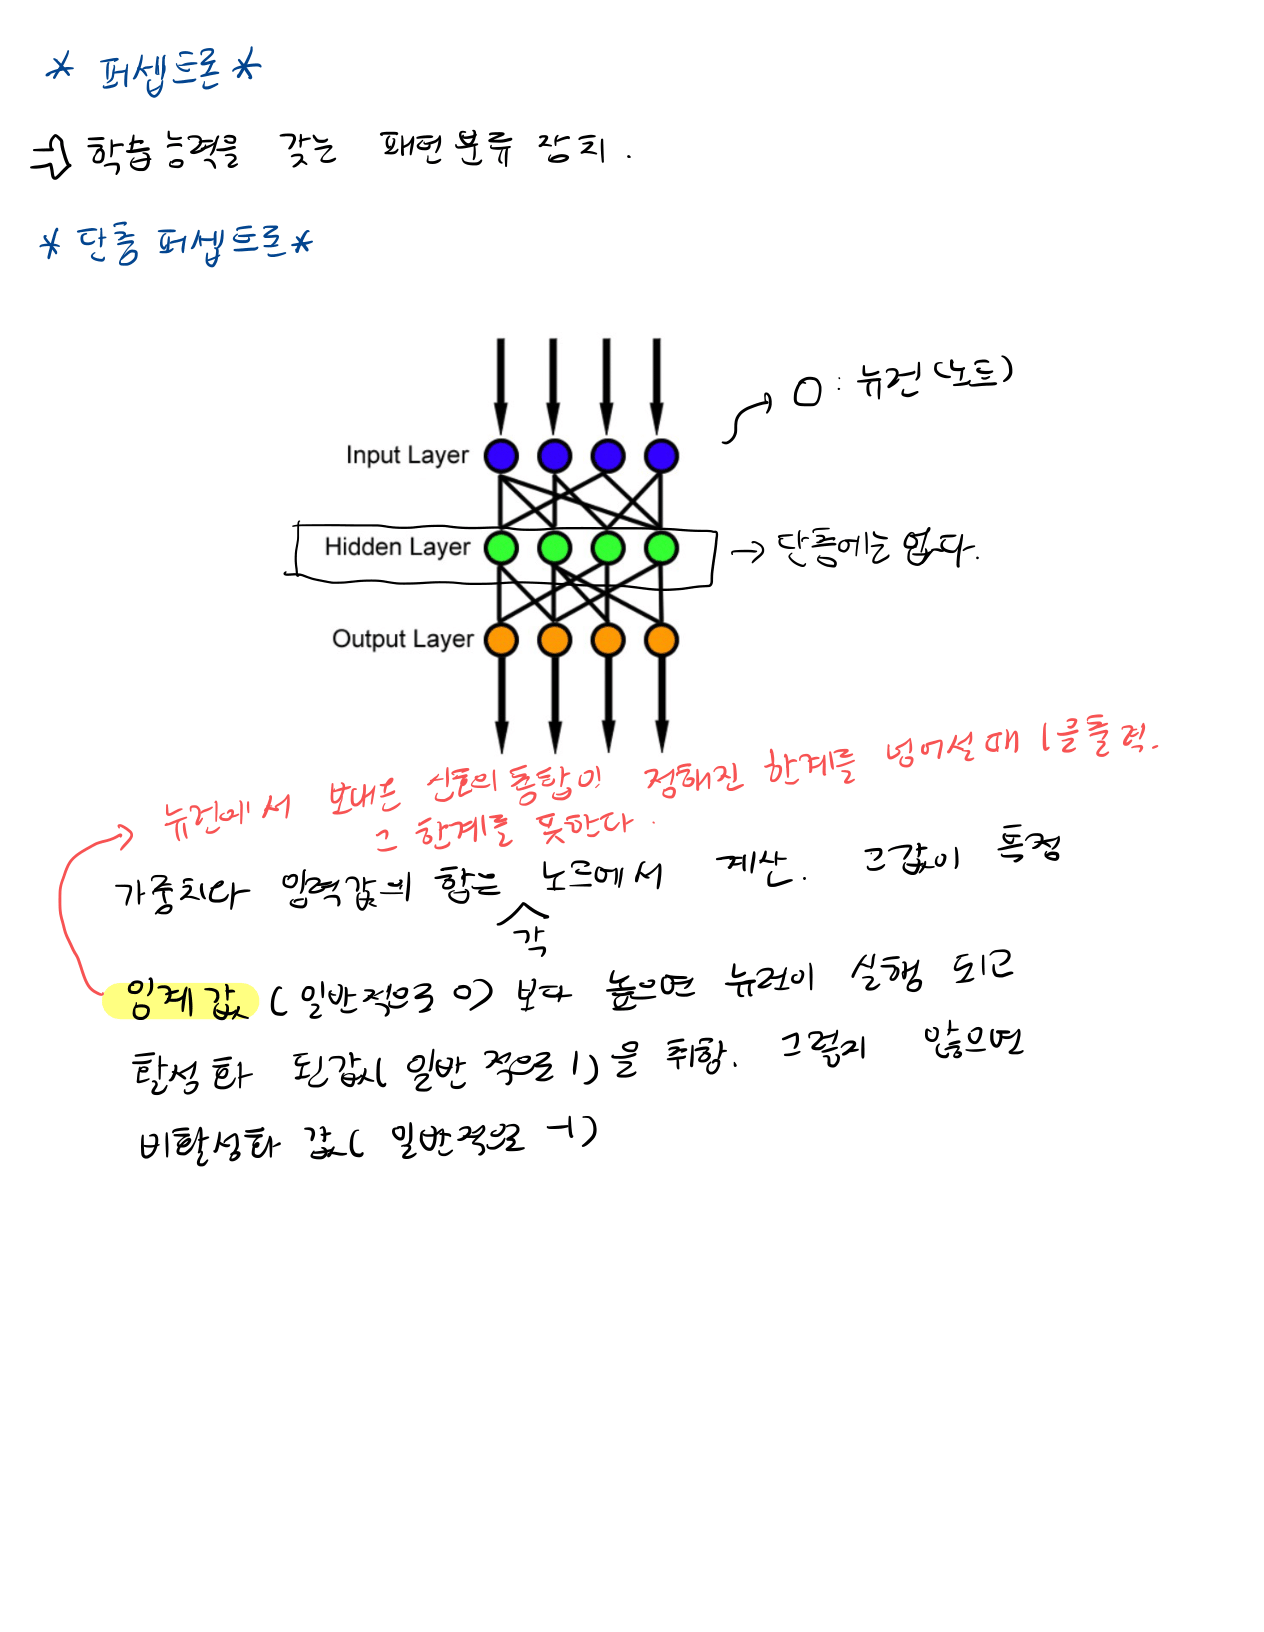 * 퍼셉트론 *
⇒ 학습 능력을 갖는 패턴 분류 장치.
* 단층 퍼셉트론 *
O : 뉴런 (노드)
Input Layer
Hidden Layer → 단층에는 없다.
Output Layer
뉴런에서 보내온 신호의 총합이 정해진 한계를 넘어설 때 1을 출력.
그 한계를 뜻한다.
가중치와 입력값의 합은 각 노드에서 계산. 그값이 특정
임계값 (일반적으로 0) 보다 높으면 뉴런이 실행 되고
활성화 된값(일반적으로 1)을 취함. 그렇지 않으면
비활성화 값(일반적으로 -1)